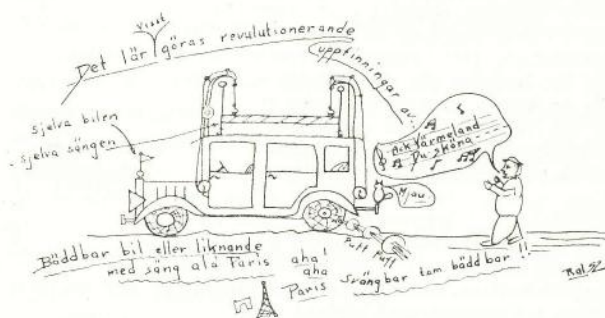 Det lär visst göras revulutionerande
uppfinningar av.
sjelva bilen
sjelva sängen
Ack Värmeland
Du sköna
Mjau
Putt Putt
Bäddbar bil eller liknande
med säng alá Paris aha!
aha
Paris svängbar tom bäddbar!!